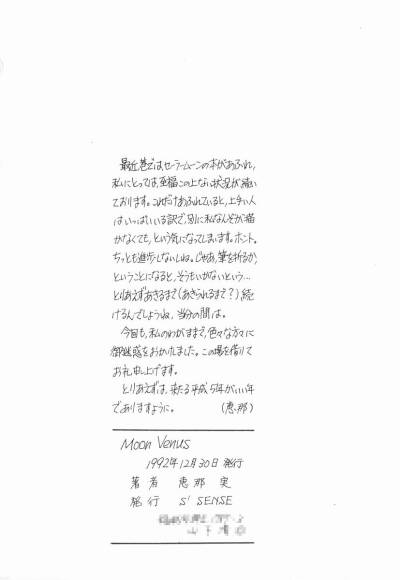 最近巷ではセーラームーンの本があふれ,
私にとっては,至福この上ない状況が続い
ております。これだけあふれていると,上手い人
はいっぱいいる訳で,別に私なんぞが描
かなくても,という気になってしまいます。ホント。
ちっとも進歩しないしね。じゃあ,筆を折るか,
ということになると,そうもいかないという…
とりあえずあきるまで(あきられるまで?)続
けるんでしょうね,当分の間は。
今回も,私のわがままで,色々な方々に
御迷惑をおかけしました。この場を借りて
お礼申し上げます。
とりあえずは,来たる平成5年がいい年
でありますように。 (恵那)
Moon Venus
1992年12月30日発行
著者 恵那 実
発行 S' SENSE